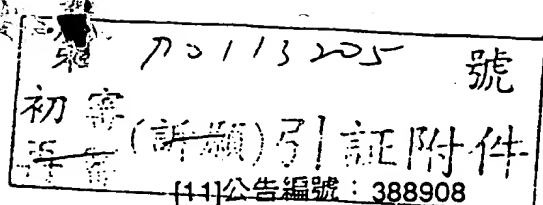 案 90113205 號
初審
再審 (訴願) 引証附件
[11]公告編號：388908